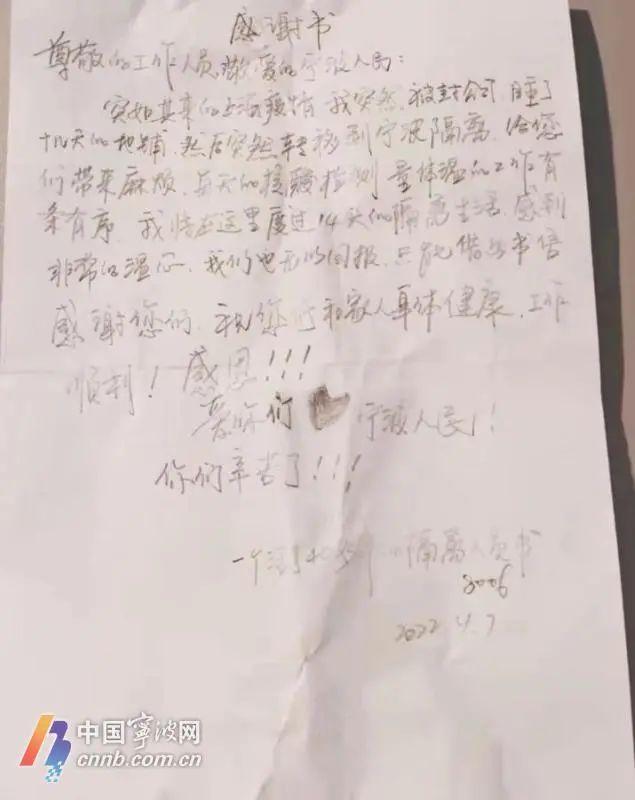 感谢书
尊敬的工作人员敬爱的宁波人民:
突如其来的上海疫情,我突然被封公司,睡了
十几天的地铺,然后突然转移到宁波隔离,给您
们带来麻烦,每天的核酸检测 量体温的工作有
条有序,我将在这里度过14天的隔离生活,感到
非常的温心,我们也无以回报,只能借此书信
感谢您们,祝您们和家人身体健康,工作
顺利! 感恩!!!
爱你们 宁波人民!
你们辛苦了!!!
一个 隔离人员书
8006
2022 4.7
中国宁波网
cnnb.com.cn